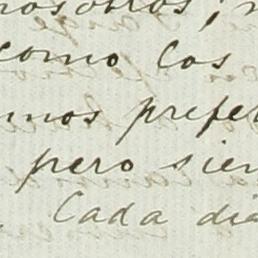 nosotros, n
como los
mos prefer
pero sien
Cada día